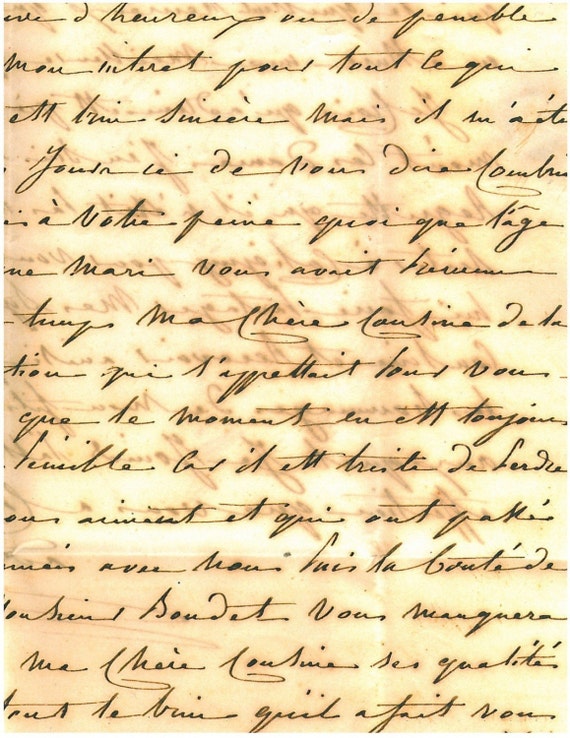 d'heureux ou de penible
mon interet pour tout ce qui
est bien sincère mais il m'a été
de vous dire Combien
à Votre peine quoi que l'âge
mari vous avait
temps Ma Chère Cousine de la
tion qui s'appettait pour vous
que le moment en est toujours
penible Car il est triste de perdre
ous aiment et qui ont passés
avec nous puis la bonté de
onsieur Boudet Vous manquera
Ma Chère Cousine ses qualités
tout le bien qu'il a fait vous